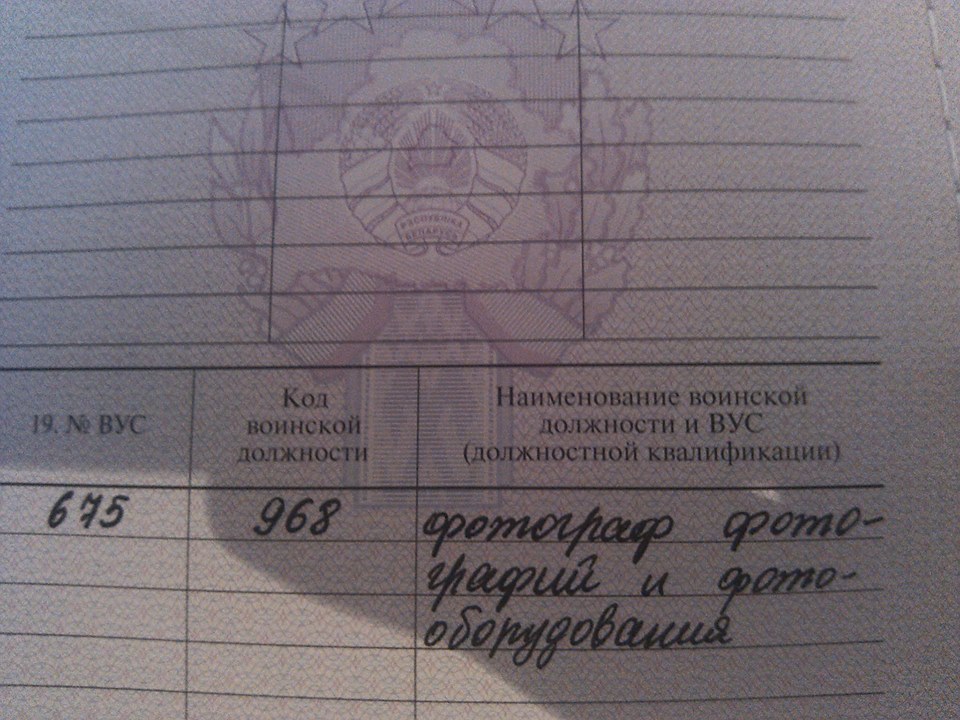 РЭСПУБЛІКА
БЕЛАРУСЬ
19. № ВУС
Код
воинской
должности
Наименование воинской
должности и ВУС
(должностной квалификации)
675
968
фотограф фото-
графий и фото-
оборудования